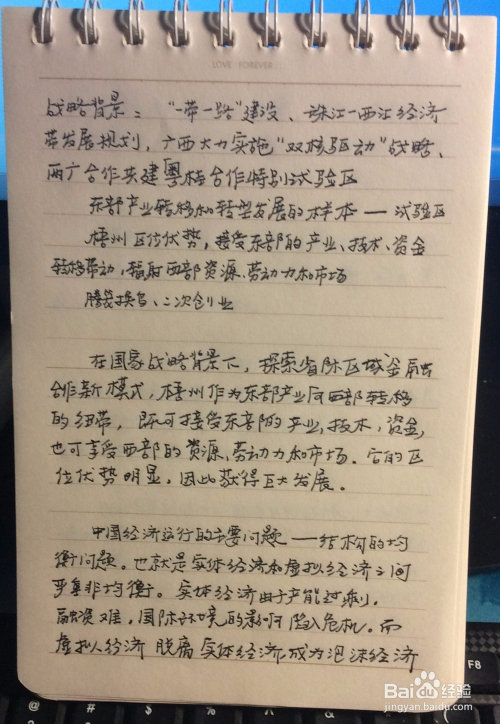 LOVE FOREVER
战略背景：“一带一路”建设、珠江—西江经济
带发展规划，广西大力实施“双核驱动”战略、
两广合作共建粤桂合作特别试验区
东部产业转移和转型发展的样本—试验区
梧州区位优势，接受东部的产业、技术、资金
转移带动，辐射西部资源、劳动力和市场
腾笼换鸟、二次创业
在国家战略背景下，探索省际区域金融
合作新模式，梧州作为东部产业向西部转移
的纽带，既可接受东部的产业，技术，资金，
也可享受西部的资源、劳动力和市场。它的区
位优势明显，因此获得巨大发展。
中国经济运行的主要问题——结构的均
衡问题。也就是实体经济和虚拟经济之间
严重非均衡。实体经济由于产能过剩，
融资难，国际环境的影响陷入危机。而
虚拟经济脱离实体经济成为泡沫经济
F8
@ # $ %
Baidu经验
jingyan.baidu.com